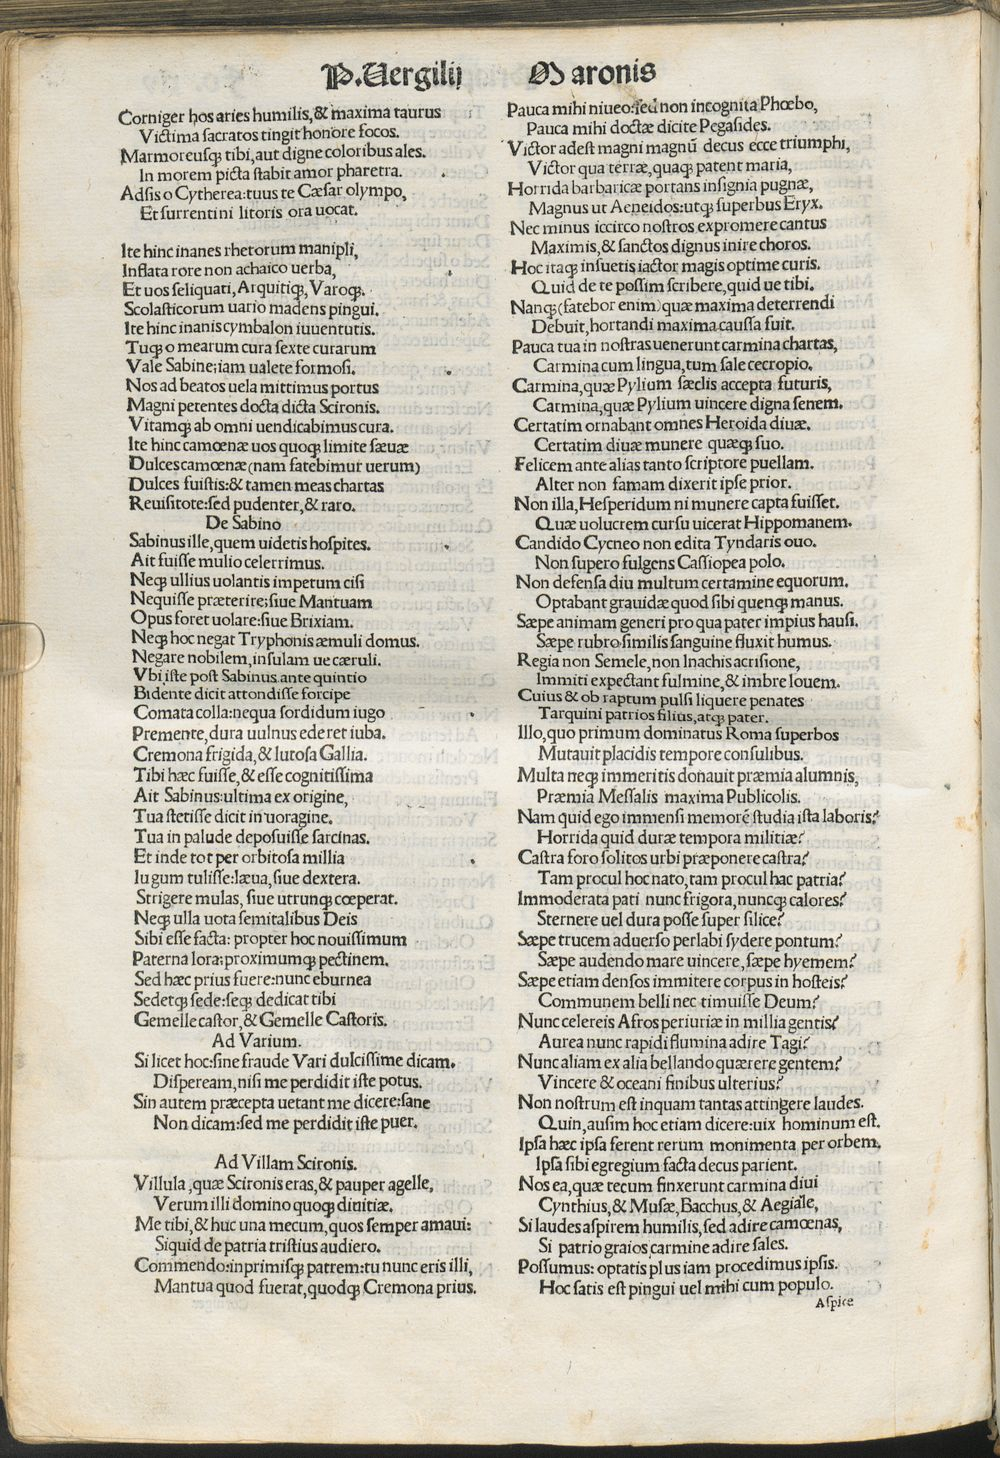 P. Uergilij Maronis
Corniger hos aries humilis,& maxima taurus
Victima sacratos tingit honore focos.
Marmoreusqꝫ tibi,aut digne coloribus ales.
In morem picta stabit amor pharetra.
Adsis o Cytherea:tuus te Cæsar olympo,
Et surrentini litoris ora uocat.
Ite hinc inanes rhetorum manipli,
Inflata rore non achaico uerba,
Et uos seliquati,Arquitiqꝫ,Varoqꝫ.
Scolasticorum uario madens pingui.
Ite hinc inanis cymbalon iuuentutis.
Tuqꝫ o mearum cura sexte curarum
Vale Sabine:iam ualete formosi.
Nos ad beatos uela mittimus portus
Magni petentes docta dicta Scironis.
Vitamqꝫ ab omni uendicabimus cura.
Ite hinc camœnæ uos quoqꝫ limite sæuæ
Dulces camœnæ(nam fatebimur uerum)
Dulces fuistis:& tamen meas chartas
Reuisitote:sed pudenter,& raro.
De Sabino
Sabinus ille,quem uidetis hospites.
Ait fuisse mulio celerrimus.
Neqꝫ ullius uolantis impetum cisi
Nequisse præterire:siue Mantuam
Opus foret uolare:siue Brixiam.
Neqꝫ hoc negat Tryphonis æmuli domus.
Negare nobilem,insulam ue cæruli.
Vbi iste post Sabinus ante quintio
Bidente dicit attondisse forcipe
Comata colla:nequa sordidum iugo
Premente,dura uulnus ederet iuba.
Cremona frigida,& lutosa Gallia.
Tibi hæc fuisse,& esse cognitissima
Ait Sabinus:ultima ex origine,
Tua stetisse dicit in uoragine.
Tua in palude deposuisse sarcinas.
Et inde tot per orbitosa millia
Iugum tulisse:læua,siue dextera.
Strigere mulas, siue utrunqꝫ cœperat.
Neqꝫ ulla uota semitalibus Deis
Sibi esse facta: propter hoc nouissimum
Paterna lora:proximumqꝫ pectinem.
Sed hæc prius fuere:nunc eburnea
Sedetqꝫ sede:seqꝫ dedicat tibi
Gemelle castor,& Gemelle Castoris.
Ad Varium.
Si licet hoc:sine fraude Vari dulcissime dicam.
Dispeream,nisi me perdidit iste potus.
Sin autem præcepta uetant me dicere:sane
Non dicam:sed me perdidit iste puer.
Ad Villam Scironis.
Villula,quæ Scironis eras,& pauper agelle,
Verum illi domino quoqꝫ diuitiæ.
Me tibi,& huc una mecum,quos semper amaui:
Siquid de patria tristius audiero.
Commendo:inprimisqꝫ patrem:tu nunc eris illi,
Mantua quod fuerat,quodqꝫ Cremona prius.
Pauca mihi niueo:sed non incognita Phœbo,
Pauca mihi doctæ dicite Pegasides.
Victor adest magni magnū decus ecce triumphi,
Victor qua terræ,quaqꝫ patent maria,
Horrida barbaricæ portans insignia pugnæ,
Magnus ut Aeneidos:utqꝫ superbus Eryx.
Nec minus iccirco nostros expromere cantus
Maximis,& sanctos dignus inire choros.
Hoc itaqꝫ insuetis iactor magis optime curis.
Quid de te possim scribere,quid ue tibi.
Nanqꝫ(fatebor enim)quæ maxima deterrendi
Debuit,hortandi maxima caussa fuit.
Pauca tua in nostras uenerunt carmina chartas,
Carmina cum lingua,tum sale cecropio.
Carmina,quæ Pylium sæclis accepta futuris,
Carmina,quæ Pylium uincere digna senem.
Certatim ornabant omnes Heroida diuæ.
Certatim diuæ munere quæqꝫ suo.
Felicem ante alias tanto scriptore puellam.
Alter non famam dixerit ipse prior.
Non illa,Hesperidum ni munere capta fuisset.
Quæ uolucrem cursu uicerat Hippomanem.
Candido Cycneo non edita Tyndaris ouo.
Non supero fulgens Cassiopea polo.
Non defensa diu multum certamine equorum.
Optabant grauidæ quod sibi quenqꝫ manus.
Sæpe animam generi pro qua pater impius hausi.
Sæpe rubro similis sanguine fluxit humus.
Regia non Semele,non Inachis acrisione,
Immiti expectant fulmine,& imbre Iouem.
Cuius & ob raptum pulsi liquere penates
Tarquini patrios filius,atqꝫ pater.
Illo,quo primum dominatus Roma superbos
Mutauit placidis tempore consulibus.
Multa neqꝫ immeritis donauit præmia alumnis,
Præmia Messalis maxima Publicolis.
Nam quid ego immensi memorē studia ista laboris?
Horrida quid duræ tempora militiæ?
Castra foro solitos urbi præponere castra?
Tam procul hoc nato,tam procul hac patria?
Immoderata pati nunc frigora,nuncqꝫ calores?
Sternere uel dura posse super silice?
Sæpe trucem aduerso perlabi sydere pontum?
Sæpe audendo mare uincere,sæpe hyemem?
Sæpe etiam densos immitere corpus in hosteis?
Communem belli nec timuisse Deum?
Nunc celereis Afros periuriæ in millia gentis?
Aurea nunc rapidi flumina adire Tagi?
Nunc aliam ex alia bellando quærere gentem?
Vincere & oceani finibus ulterius?
Non nostrum est inquam tantas attingere laudes.
Quin,ausim hoc etiam dicere:uix hominum est.
Ipsa hæc ipsa ferent rerum monimenta per orbem.
Ipsa sibi egregium facta decus parient.
Nos ea,quæ tecum finxerunt carmina diui
Cynthius,& Musæ,Bacchus,& Aegiale,
Si laudes aspirem humilis,sed adire camœnas,
Si patrio graios carmine adire sales.
Possumus: optatis plus iam procedimus ipsis.
Hoc satis est pingui uel mihi cum populo.
Aspice